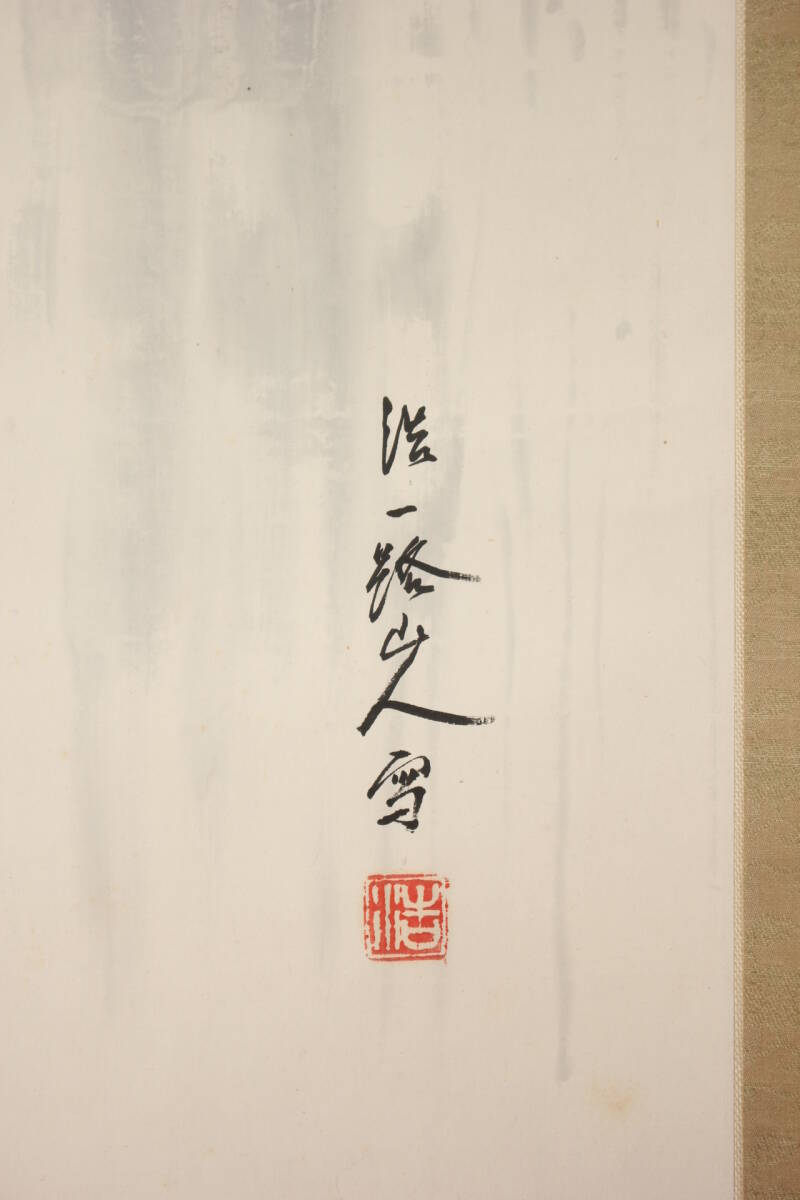 浩一路山人雪
浩